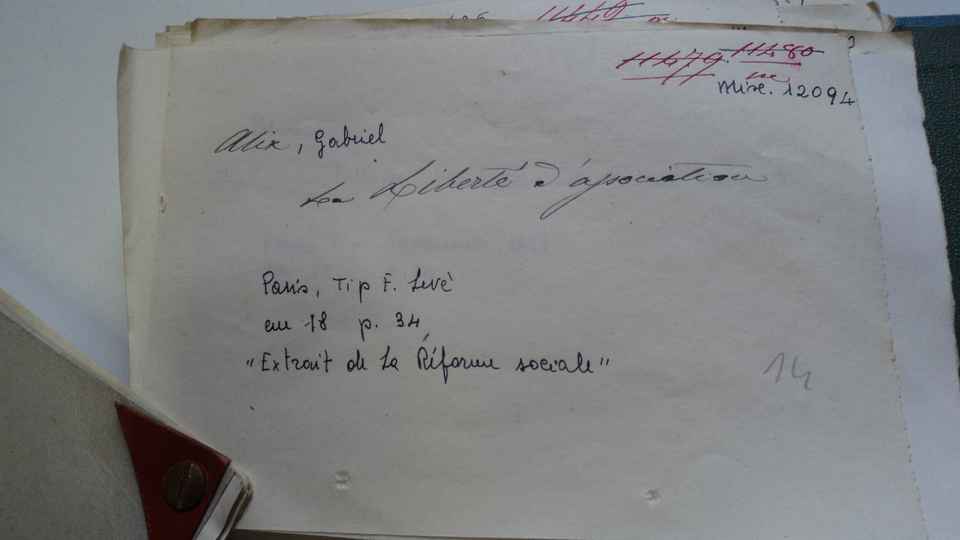 11479 11480
Misc. 12094
Alix, Gabriel
La Liberté d'association
Paris, Tip F. Levè
en 18 p. 34
"Extrait de La Réforme sociale"
14